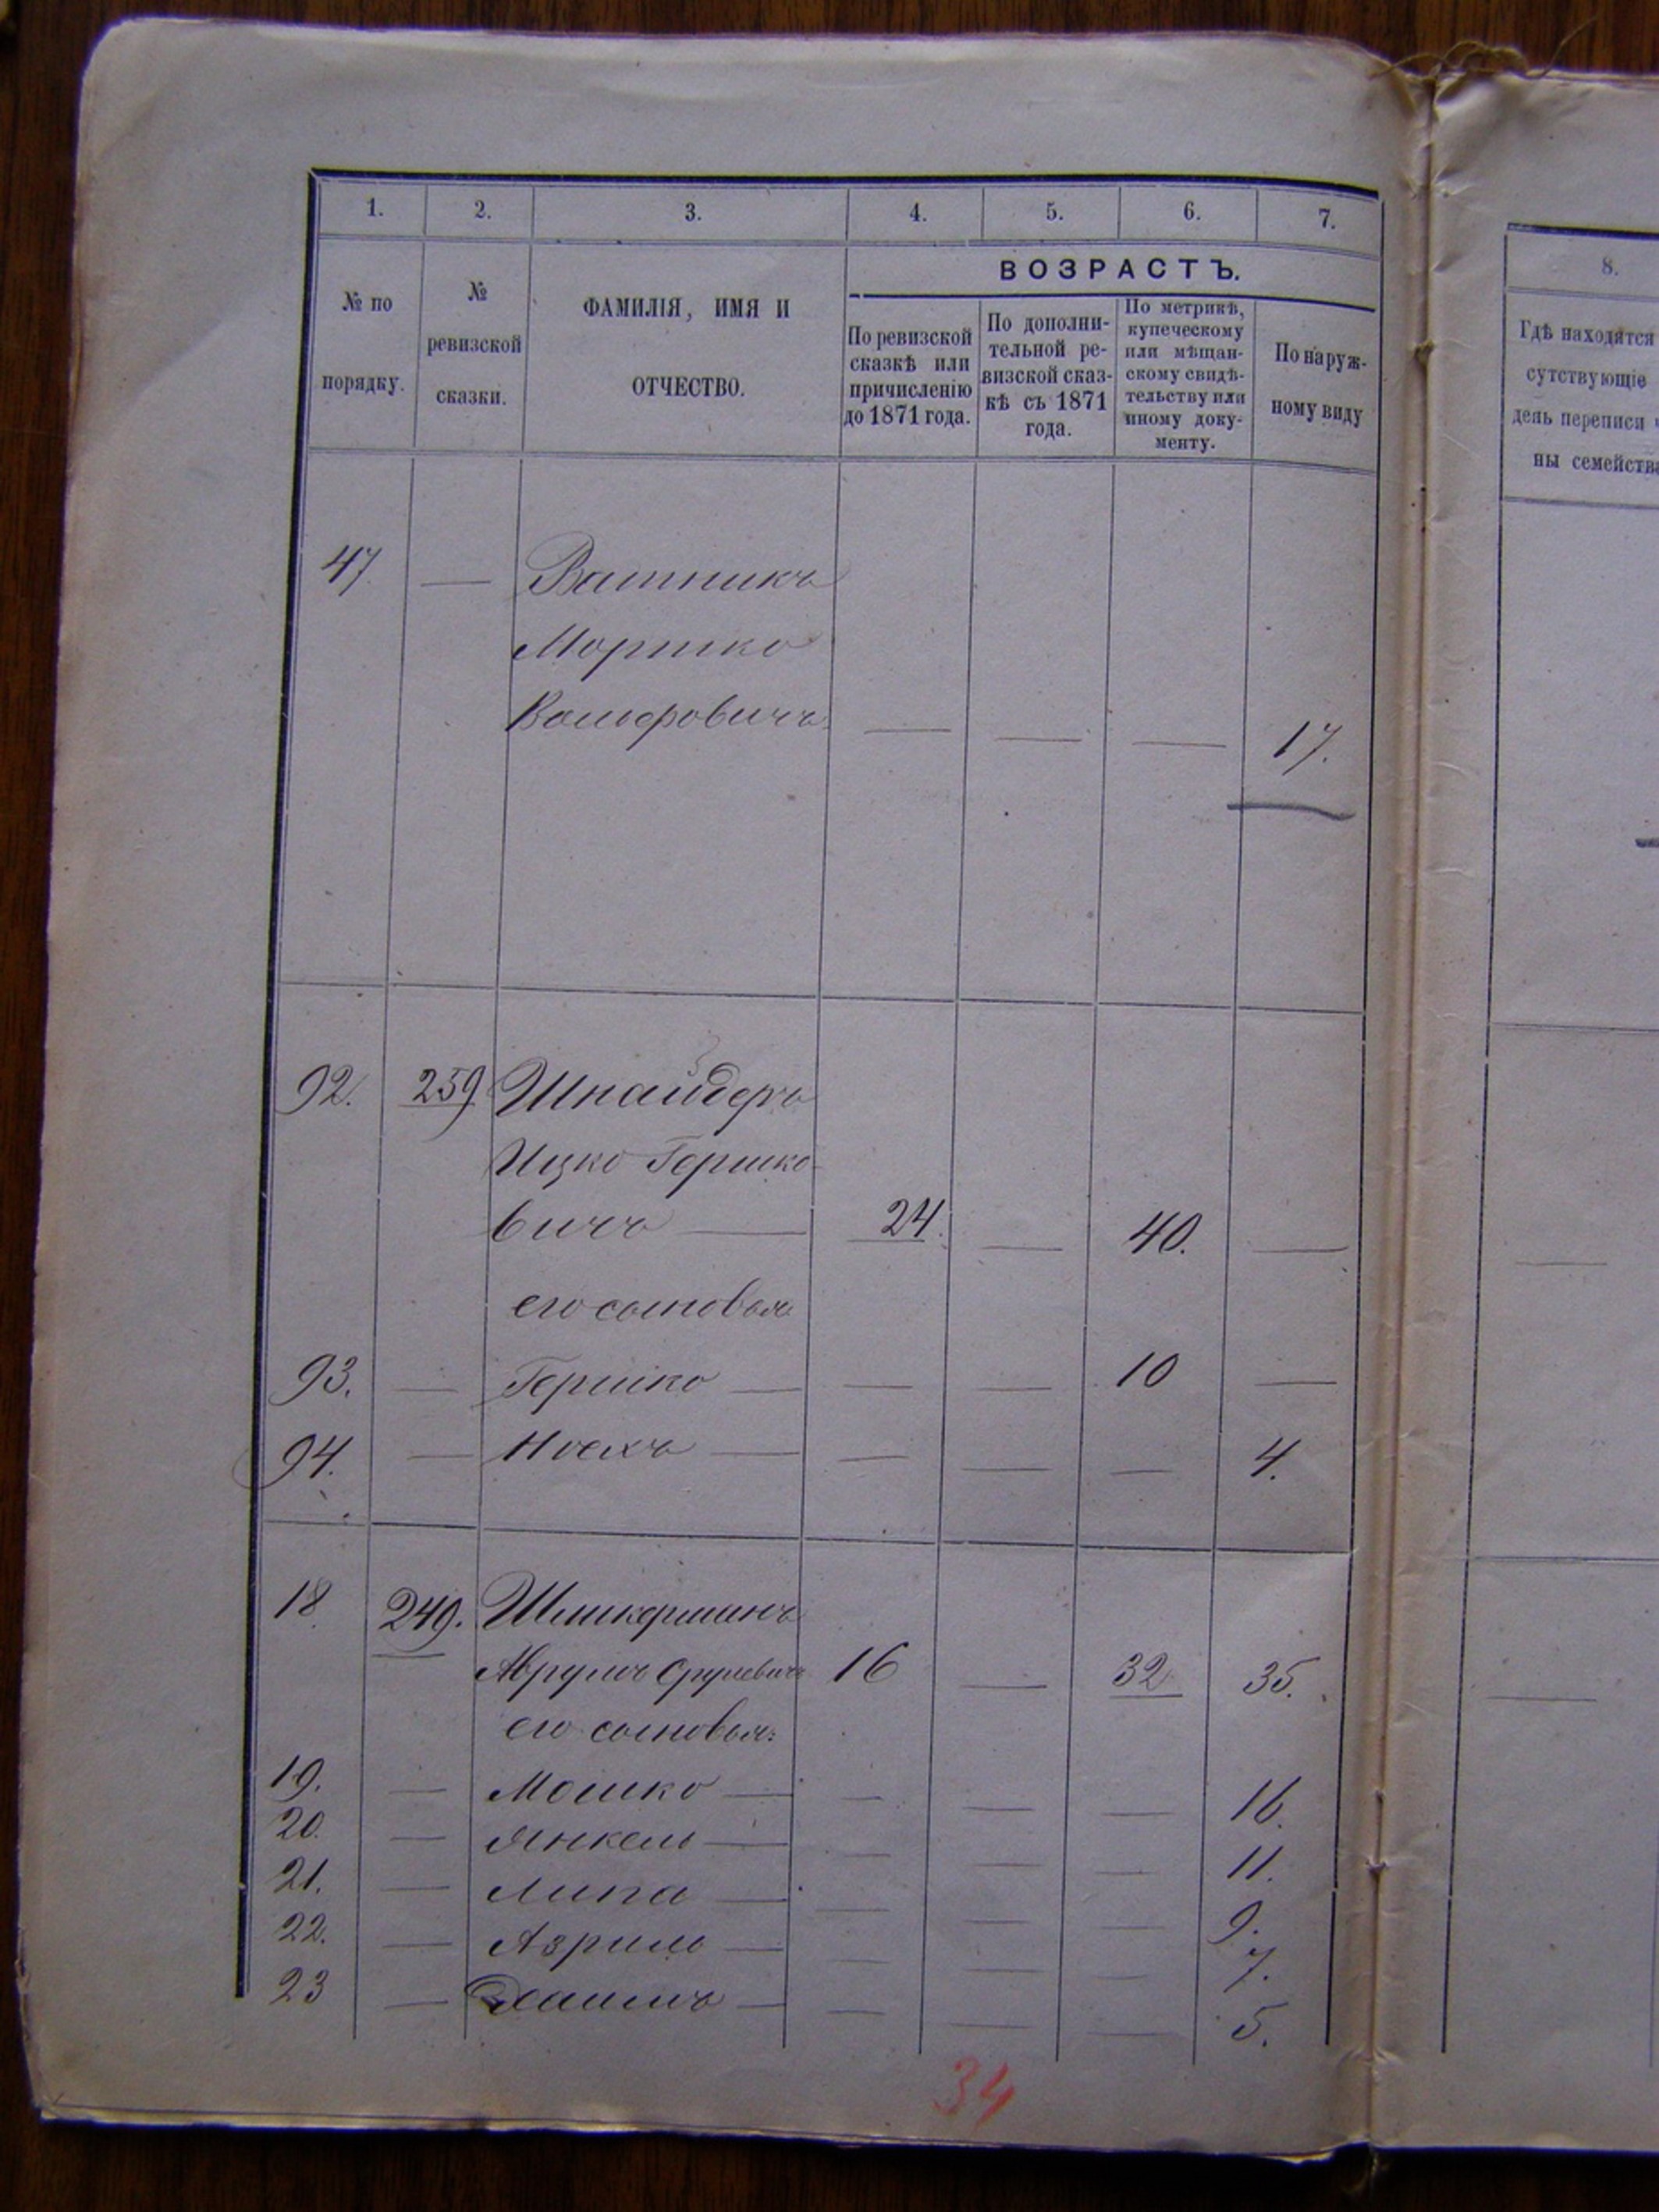 1. 2. 3. 4. 5. 6. 7.
ВОЗРАСТЪ.
№ по
порядку.
№
ревизской
сказки.
ФАМИЛІЯ, ИМЯ И
ОТЧЕСТВО.
По ревизской
сказкѣ или
причисленію
до 1871 года.
По дополни-
тельной ре-
визской сказ-
кѣ съ 1871
года.
По метрикѣ,
купеческому
или мѣщан-
скому свидѣ-
тельству или
иному доку-
менту.
По наруж-
ному виду
47. — Ватникъ
Мортко
Вольфовичъ — — — 17.
92. 259 Шнайдеръ
Ицко Гершко-
вичъ — 24. — 40. —
его сыновья
93. — Гершко — — — 10 —
94. — Ноехъ — — — — 4.
18. 249. Шликерманъ
Аврумъ Сруливичъ 16 — 32 35.
его сыновья:
19. — Мошко — — — — 16.
20. — Янкель — — — — 11.
21. — Липа — — — — 9.
22. — Азриль — — — — 7.
23 — Хаимъ — — — — 5.
34
8.
Гдѣ находятся
сутствующіе
день переписи ч
ны семейства